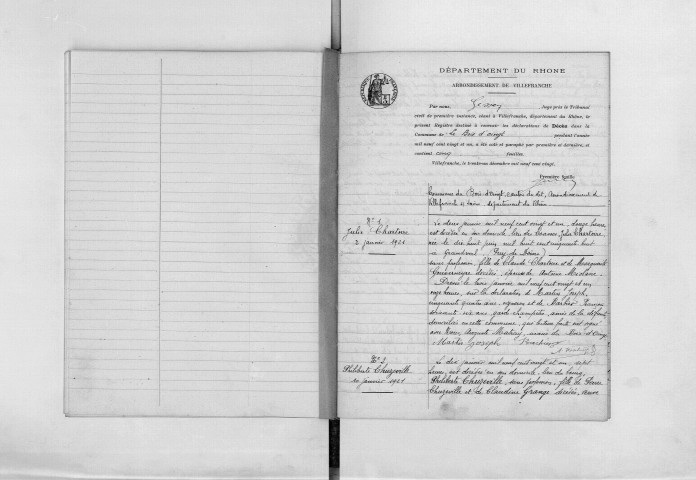 DÉPARTEMENT DU RHONE
ARRONDISSEMENT DE VILLEFRANCHE
Par nous, Juge près le Tribunal
civil de première instance, séant à Villefranche, département du Rhône, le
présent Registre destiné à recevoir les déclarations de Décès dans la
Commune de Le Bois d'Oingt pendant l'année
mil neuf cent vingt et un, a été coté et paraphé par première et dernière, et
contient feuilles
Villefranche, le trente-un décembre mil neuf cent vingt.
Première feuille
Commune du Bois d'Oingt, canton du dit, arrondissement de
Villefranche département du Rhône
N° 1
Julie Chartoire
2 janvier 1921
Le deux janvier mil neuf cent vingt et un, heures
est décédée en son domicile, lieu de Julie Chartoire
née le dix huit juin mil huit cent cinquante huit
à Grandval (Puy de Dôme)
sans profession, fille de Claude Chartoire et de Marguerite
décédés, épouse de Antoine
Dressé le janvier mil neuf cent vingt et un
heures, sur la déclaration de Martin Joseph,
cinquante quatre ans, vigneron et de
soixante six ans, garde champêtre, amis de la défunte
domiciliés en cette commune, qui lecture faite ont signé
avec Nous, Auguste maire du Bois d'Oingt
Martin Joseph
N° 2
Philiberte Chuzeville
10 janvier 1921
Le dix janvier mil neuf cent vingt et un, sept
heures, est décédée en son domicile, lieu du bourg,
Philiberte Chuzeville, sans profession, fille de Pierre
Chuzeville et de Claudine Grange décédés, veuve